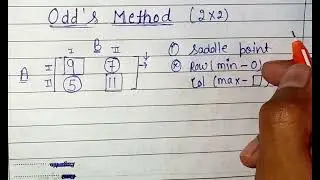 Odd's Method (2x2)
B
I II
A I 9 7
II 5 11
① Saddle point
⊗ Row (min - O)
Col (max - □)